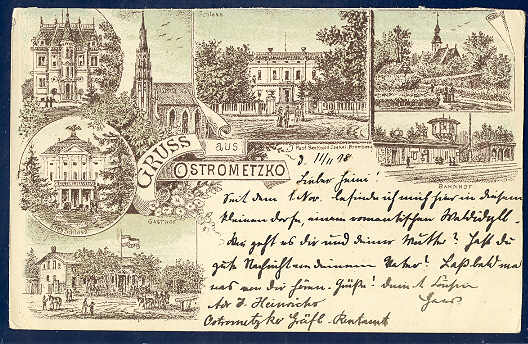 Schloss
GRUSS
aus
OSTROMETZKO
BAHNHOF
GASTHOF
d. 11/11 98
Lieber Heini!
Seit dem 1. Nov. befinde ich mich hier in diesem
kleinen Dorfe, einem romantischen Waldidyll.
Wie geht es dir und deiner Mutter? Hast du
gute Nachricht von deinem Vater? Laß bald mal
was von dir hören. Grüße!
Adr. J. Heinrichs
Ostrometzko Gräfl. Rentamt